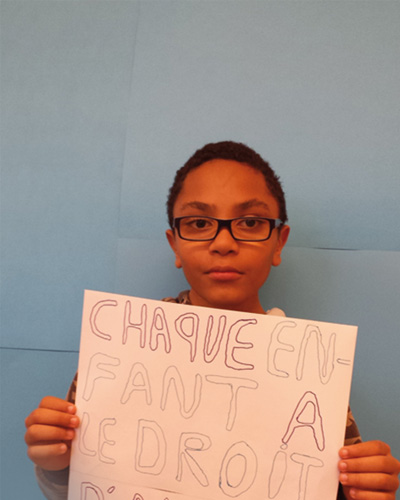 CHAQUE EN-
FANT A
LE DROIT